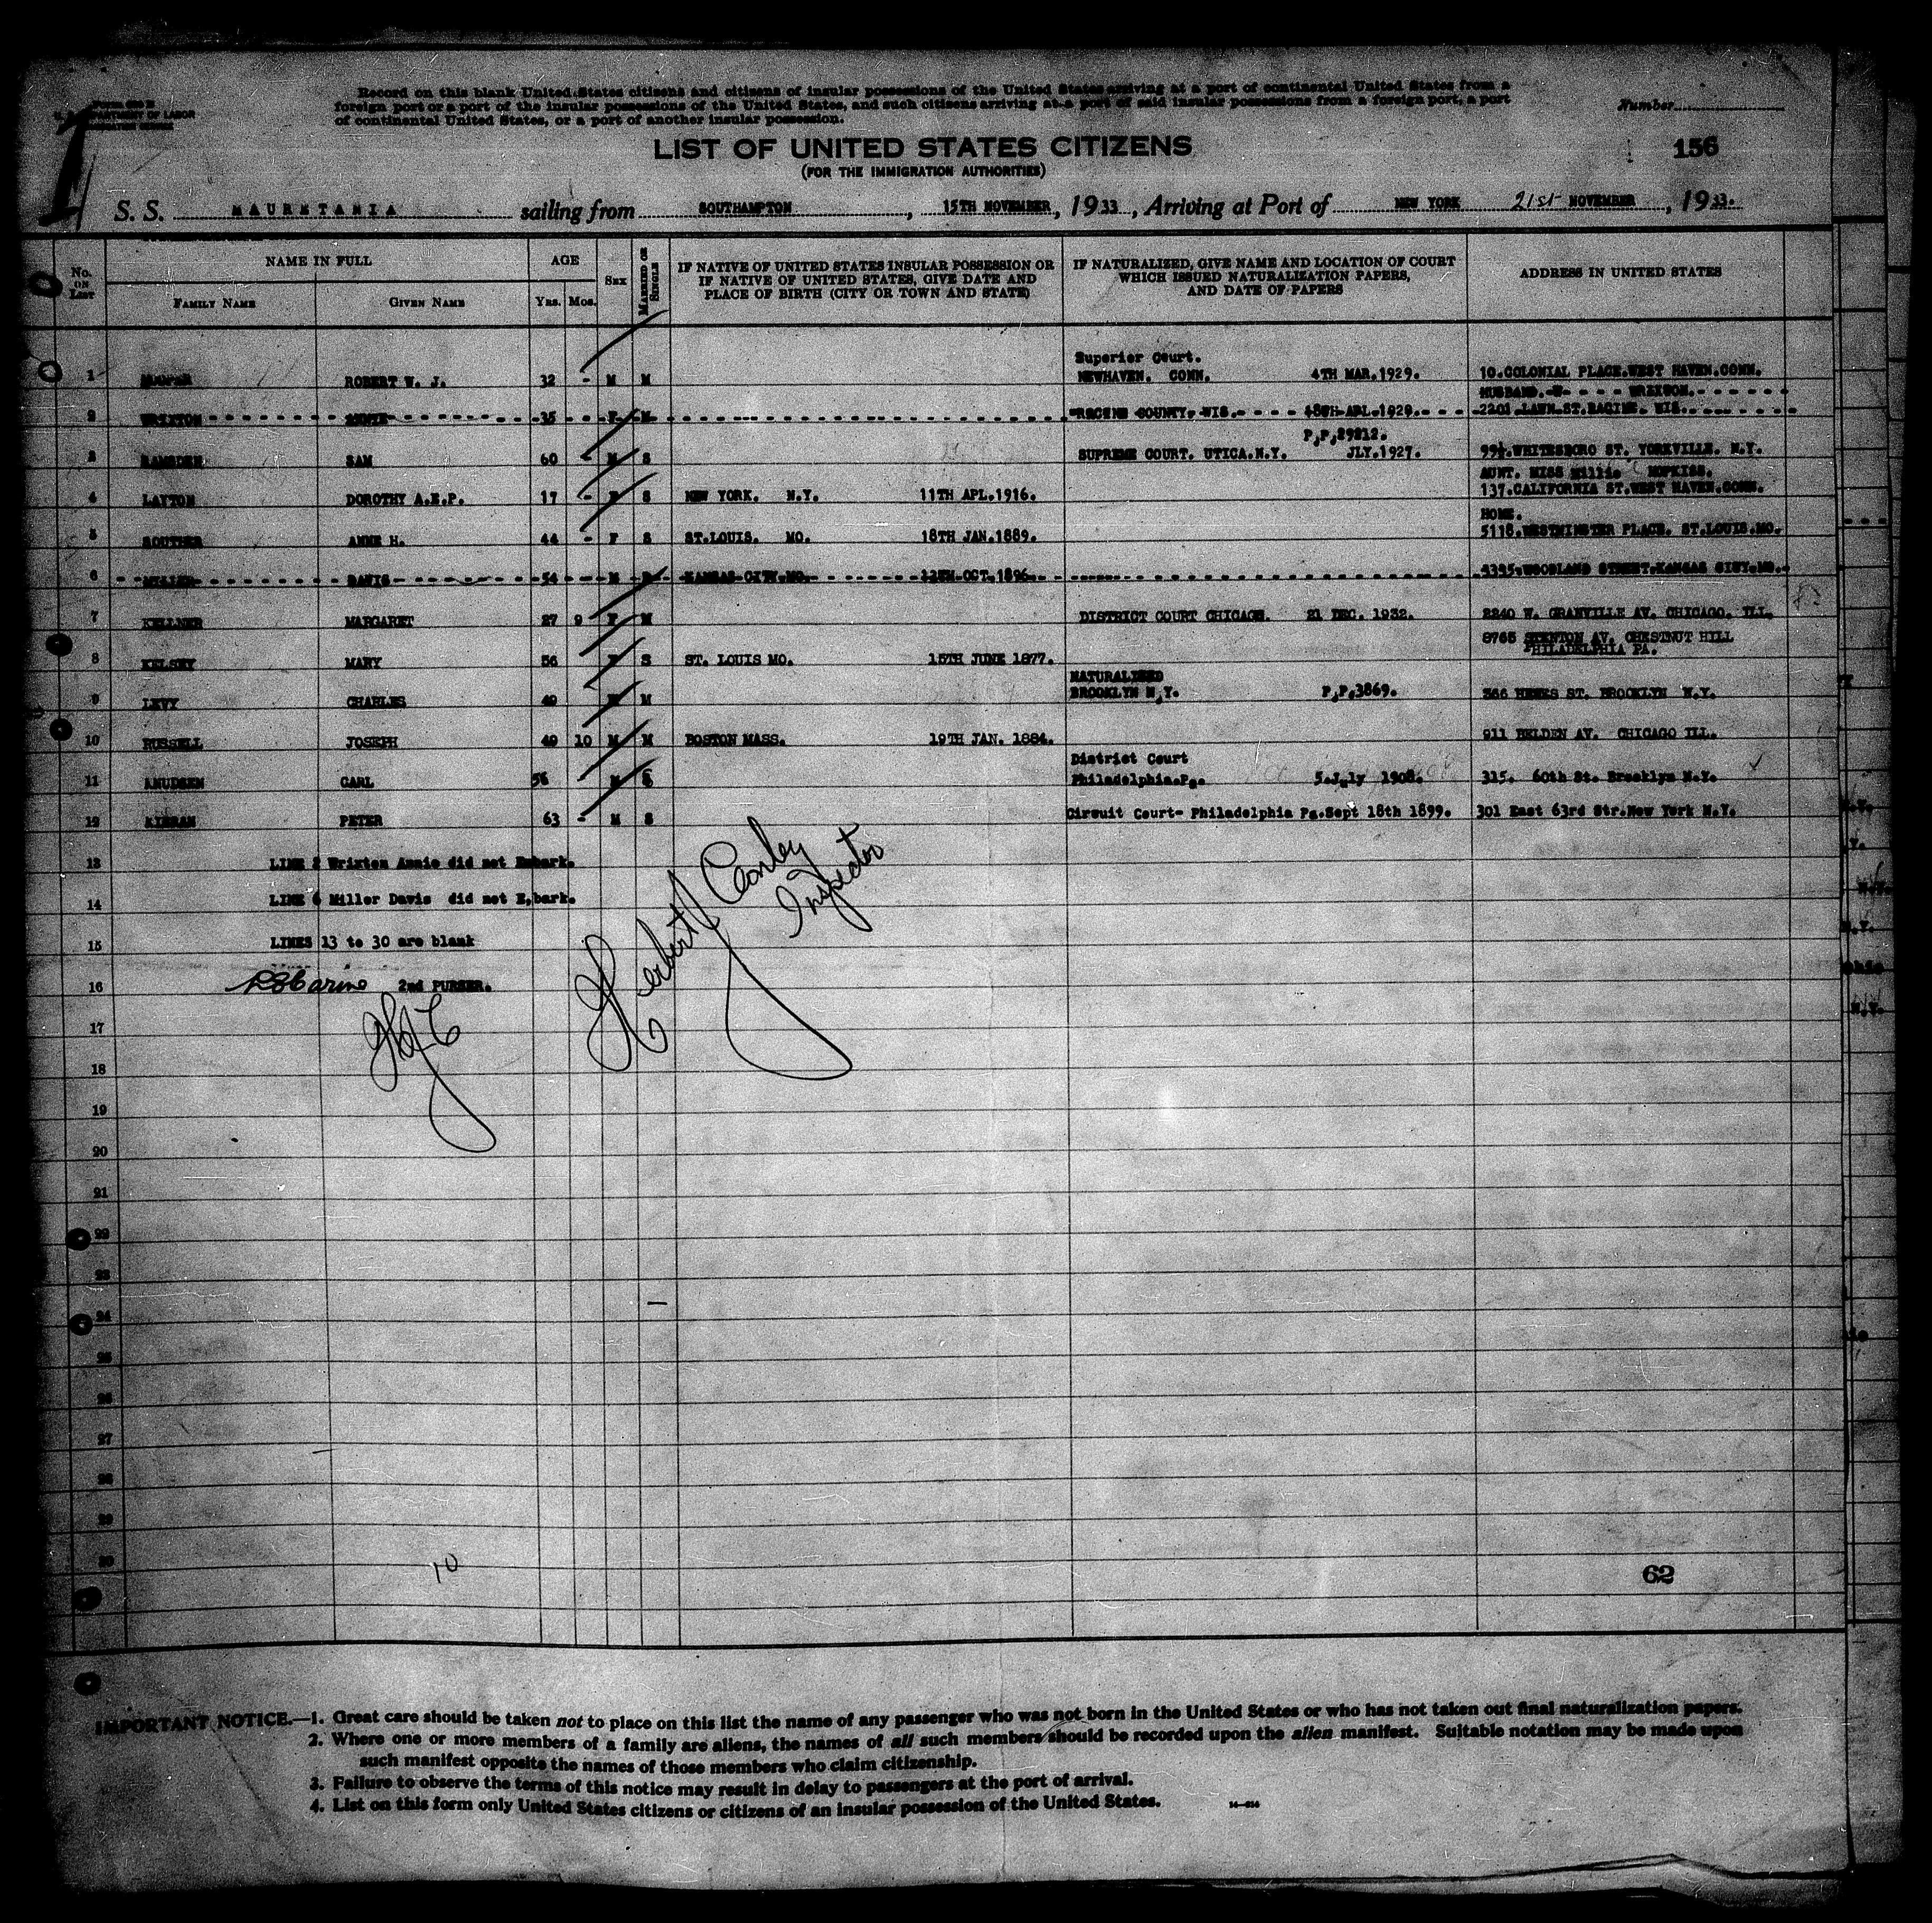 Record on this blank United States citizens and citizens of insular possessions of the United States arriving at a port of continental United States from a
foreign port or a port of the insular possessions of the United States, and such citizens arriving at a port of said insular possessions from a foreign port, a port
of continental United States, or a port of another insular possession.
Number
LIST OF UNITED STATES CITIZENS
(FOR THE IMMIGRATION AUTHORITIES)
156
S. S. MAURETANIA sailing from SOUTHAMPTON, 15TH NOVEMBER, 1933, Arriving at Port of NEW YORK 21st NOVEMBER, 1933.
No. ON LIST
NAME IN FULL
FAMILY NAME GIVEN NAME
AGE
YRS. MOS.
SEX
MARRIED OR SINGLE
IF NATIVE OF UNITED STATES INSULAR POSSESSION OR
IF NATIVE OF UNITED STATES, GIVE DATE AND
PLACE OF BIRTH (CITY OR TOWN AND STATE)
IF NATURALIZED, GIVE NAME AND LOCATION OF COURT
WHICH ISSUED NATURALIZATION PAPERS,
AND DATE OF PAPERS
ADDRESS IN UNITED STATES
Superior Court.
1 ROBERT W. J. 32 - M M NEWHAVEN. CONN. 4TH MAR.1929. 10.COLONIAL PLACE.WEST HAVEN.CONN.
HUSBAND. WRIXTON.
2 WRIXTON ANNIE 35 F M RACINE COUNTY. WIS. APL.1929. 2201 LAWN.ST.RACINE. WIS.
P,P,29212.
3 RAMSDEN SAM 60 - M S SUPREME COURT. UTICA.N.Y. JLY.1927. 99½.WHITESBORO ST. YORKVILLE. N.Y.
AUNT. MISS Millie HOPKISS.
4 LAYTON DOROTHY A.E.P. 17 - F S NEW YORK. N.Y. 11TH APL.1916. 137.CALIFORNIA ST.WEST HAVEN.CONN.
HOME.
5 SOUTHER ANNE H. 44 - F S ST.LOUIS. MO. 18TH JAN.1889. 5118.WESTMINSTER PLACE. ST.LOUIS.MO.
6 MILLER DAVIS 54 M KANSAS CITY.MO. 12TH OCT.1896 WOODLAND STREET.KANSAS CITY.MO.
7 KELLNER MARGARET 27 9 F M DISTRICT COURT CHICAGO. 21 DEC. 1932. 2240 W. GRANVILLE AV. CHICAGO. ILL.
8765 STENTON AV. CHESTNUT HILL
8 KELSEY MARY 56 F S ST. LOUIS MO. 15TH JUNE 1877. PHILADELPHIA PA.
NATURALIZED
9 LEVY CHARLES 49 M M BROOKLYN N,Y. P,P,3869. 366 HEWES ST. BROOKLYN N.Y.
10 RUSSELL JOSEPH 49 10 M M BOSTON MASS. 19TH JAN. 1884. 911 BELDEN AV. CHICAGO ILL.
District Court
11 KNUDSEN CARL 56 M S Philadelphia.Pa. 5.July 1908. 315. 60th St. Brooklyn N.Y.
12 KIERAN PETER 63 - M S Circuit Court- Philadelphia Pa.Sept 18th 1899. 301 East 63rd Str.New York N.Y.
13 LINE 2 Wrixton Annie did not Embark.
14 LINE 6 Miller Davis did not E,bark.
15 LINES 13 to 30 are blank
16 2nd PURSER.
Herbert J Conley
Inspector
17
HJC
18
19
20
21
22
23
24
25
26
27
28
29
30
10
62
IMPORTANT NOTICE.—1. Great care should be taken not to place on this list the name of any passenger who was not born in the United States or who has not taken out final naturalization papers.
2. Where one or more members of a family are aliens, the names of all such members should be recorded upon the alien manifest. Suitable notation may be made upon
such manifest opposite the names of those members who claim citizenship.
3. Failure to observe the terms of this notice may result in delay to passengers at the port of arrival.
4. List on this form only United States citizens or citizens of an insular possession of the United States.